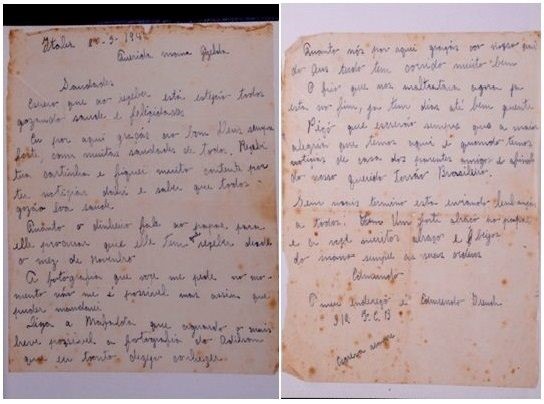 Italia 1-3-194
Querida mana Zelda
Saudades
Espero que ao receber esta estejão todos
gozando saude e felicidades
Eu por aqui graças ao bom Deus sempre
forte, com muitas saudades de todos. Recebi
tua cartinha e fiquei muito contente por
ter noticias dahi e saber que todos
gozão boa saude.
Quanto o dinheiro fala ao papae para
elle procurar que elle tem que receber desde
o mez de Novembro
A fotografia que voce me pede no mo-
mento não me é possivel mas assim que
puder mandarei
Diga a Mafalda que aguardo o mais
breve possivel a fotografia do
que eu tanto desejo conhecer.
Quanto nós por aqui graças ao nosso
do Deus tudo tem corrido muito bem
O frio que nos maltratava agora já
esta no fim, faz tem dias até bem quente
Peço que escrevão sempre que a maior
alegria que temos aqui é quando temos
noticias de casa dos parentes amigos e
do nosso querido Torrão Brasileiro.
Sem mais termino esta enviando lembranças
a todos. Um forte abraço ao papae
e a você muitos abraços e beijos
do mano sempre as suas ordens
Edmundo
O meu endereço é Edmundo
F.E.B